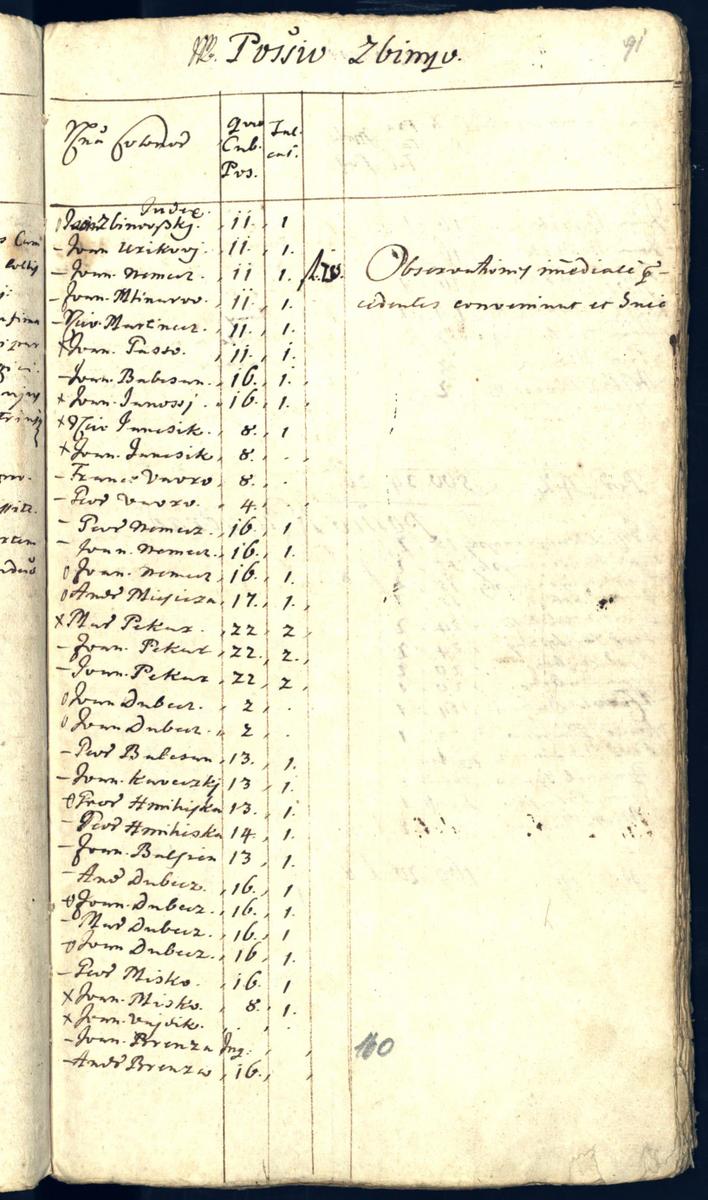 Possio Zbinyo.
91
Colonor
quo Cub. Pos.
Judex
Zbinovskj. 11. 1
Joan Urikovj. 11. 1.
Joan. Nemecz 11 1.
Observationes im̄ediate
cedentes conveniunt et
Joan. Mlinarov 11. 1.
Martinecz 11. 1.
Joan. Passo. 11. 1.
Joan. Balesan. 16. 1.
Joan. Janossj. 16. 1.
Jancsik. 8. 1
Joan. Jancsik. 8. .
Franc Vavro 8. .
Petr Vavro. 4. .
Petr Nemecz. 16. 1
Joan. Nemecz. 16. 1.
Joan. Nemecz 16. 1.
Andr 17. 1.
Mar Pekar. 22 2
Joan. Pekar 22. 2.
Joan. Pekar 22 2
Joan Dubecz. 2 .
Joan Dubecz. 2 .
Petr Balesan 13. 1.
Joan. 13 1.
Petr Hmiliska 13. 1.
Petr Hmiliska 14. 1.
Joan. 13 1.
And Dubecz. 16. 1.
Joan. Dubecz. 16. 1.
Mar Dubecz. 16. 1
Joan Dubecz. 16 1.
Petr Misko. 16. 1
Joan. Misko. 8. 1.
Joan. Vajdik. . .
Joan. Brenza Inq.
160
Andr Brenza 16.